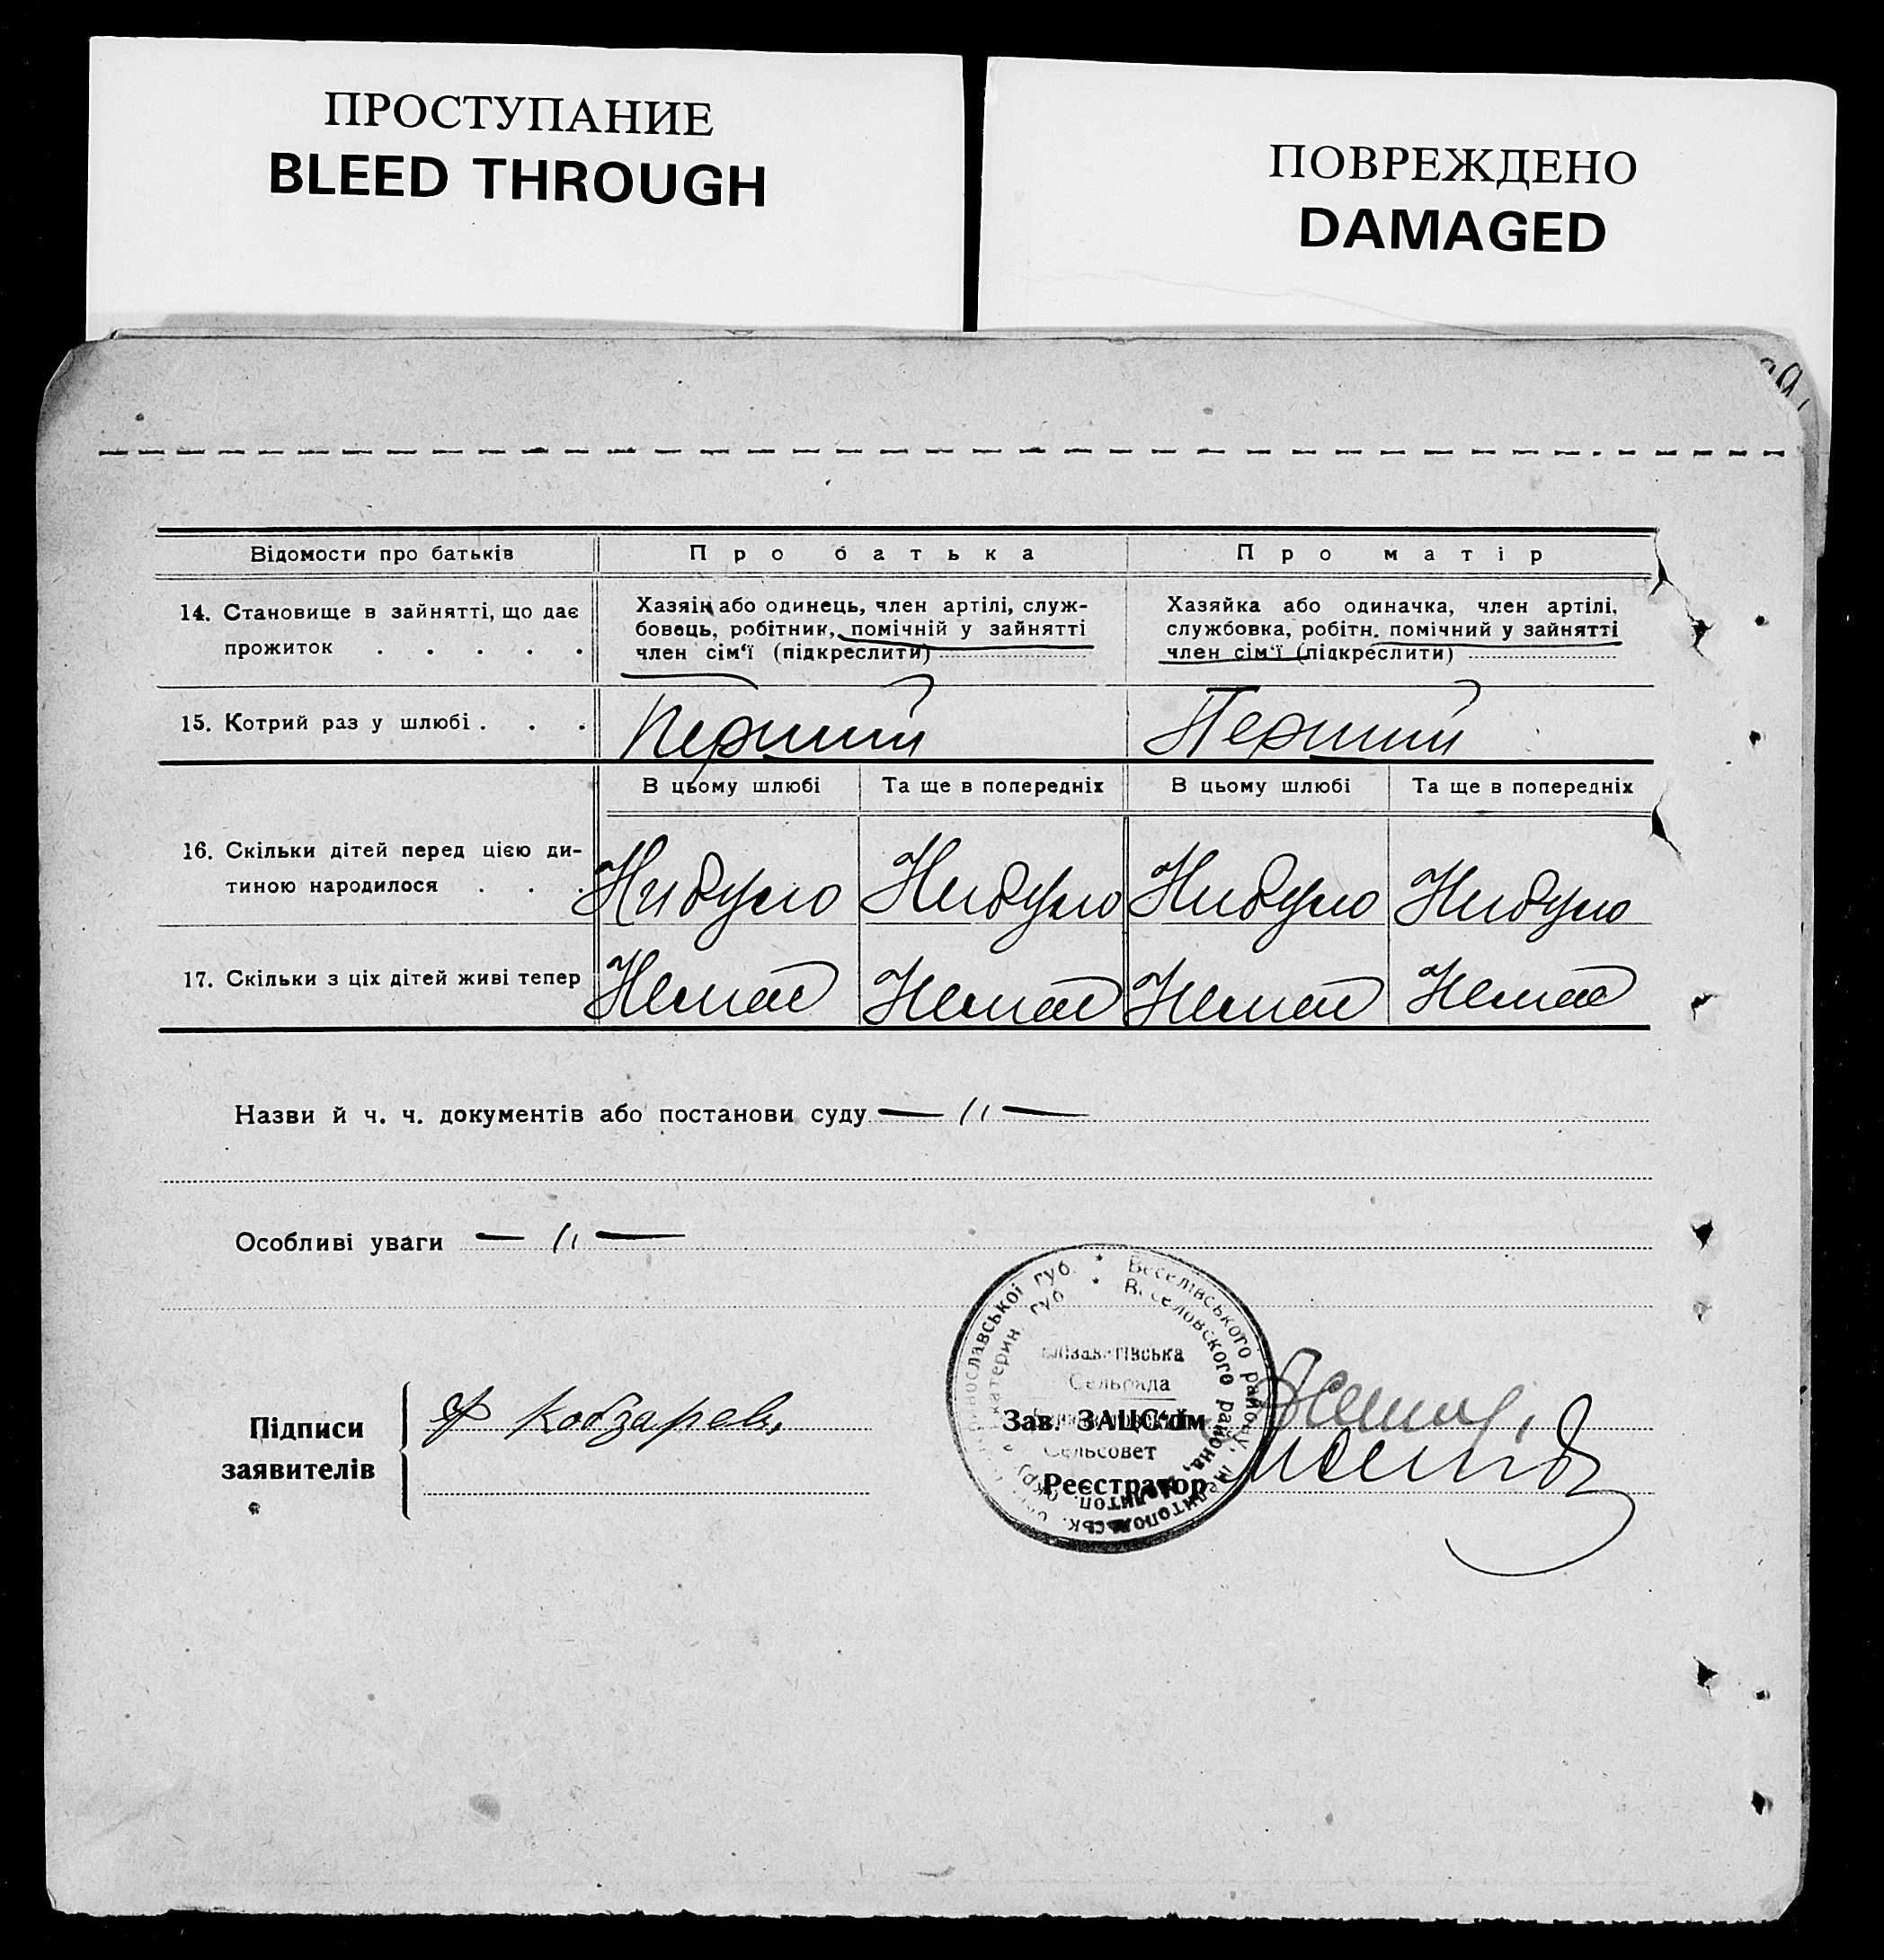 ПРОСТУПАНИЕ
BLEED THROUGH
ПОВРЕЖДЕНО
DAMAGED
Відомости про батьків
Про батька
Про матір
14. Становище в зайнятті, що дає
прожиток . . . . .
Хазяін або одинець, член артілі, служ-
бовець, робітник, помічній у зайнятті
член сім'ї (підкреслити)
Хазяйка або одиначка, член артілі,
службовка, робітн. помічний у зайнятті
член сім'ї (підкреслити)
15. Котрий раз у шлюбі . . .
Перший
Перший
В цьому шлюбі
Та ще в попередніх
В цьому шлюбі
Та ще в попередніх
16. Скільки дітей перед цією ди-
тиною народилося . . .
Нибуло
Нибуло
Нибуло
Нибуло
17. Скільки з ціх дітей живі тепер
Немає
Немає
Немає
Немає
Назви й ч. ч. документів або постанови суду — 〃 —
Особливі уваги — 〃 —
Підписи
заявителів
Ф Кобзарев
Веселівського району, Мелітопольськ.
Веселовского района,
Сельрада
Зав. ЗАЦС'ом
Сельсовет
Реєстратор